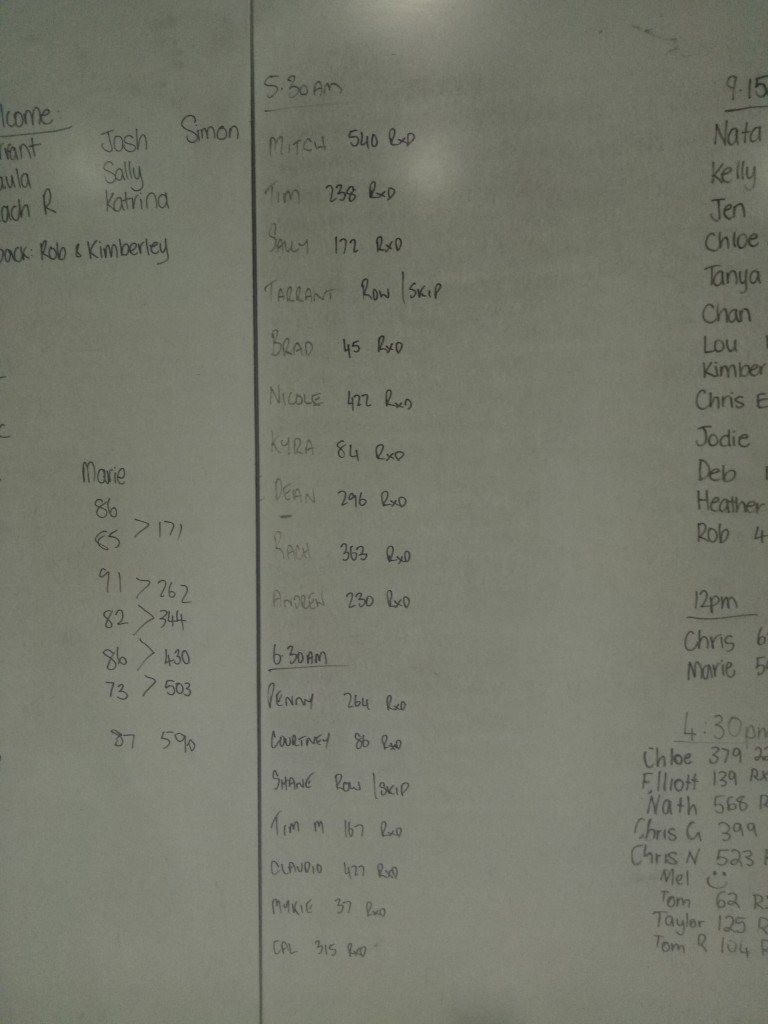 lcome:
rrant Josh Simon
aula Sally
ach R Katrina
back: Rob & Kimberley
Marie
86
85 > 171
91 > 262
82 > 344
86 > 430
73 > 503
87 590
5:30AM
MITCH 540 RxD
TIM 238 RxD
SALLY 172 RxD
TARRANT ROW/SKIP
BRAD 45 RxD
NICOLE 422 RxD
KYRA 84 RxD
DEAN 296 RxD
RACH 363 RxD
ANDREW 230 RxD
6:30AM
PENNY 264 RxD
COURTNEY 86 RxD
SHANE ROW/SKIP
TIM M 167 RxD
CLAUDIO 477 RxD
MYKIE 37 RxD
CAL 315 RxD
9.15
Nata
Kelly
Jen
Chloe
Tanya
Chan
Lou
Kimber
Chris E
Jodie
Deb
Heather
Rob 4
12pm
Chris 6
Marie 5
4:30pm
Chloe 379 22
Elliott 139 RX
Nath 568 R
Chris G 399
Chris N 523 R
Mel
Tom 62 RX
Taylor 125 R
Tom R 104 R